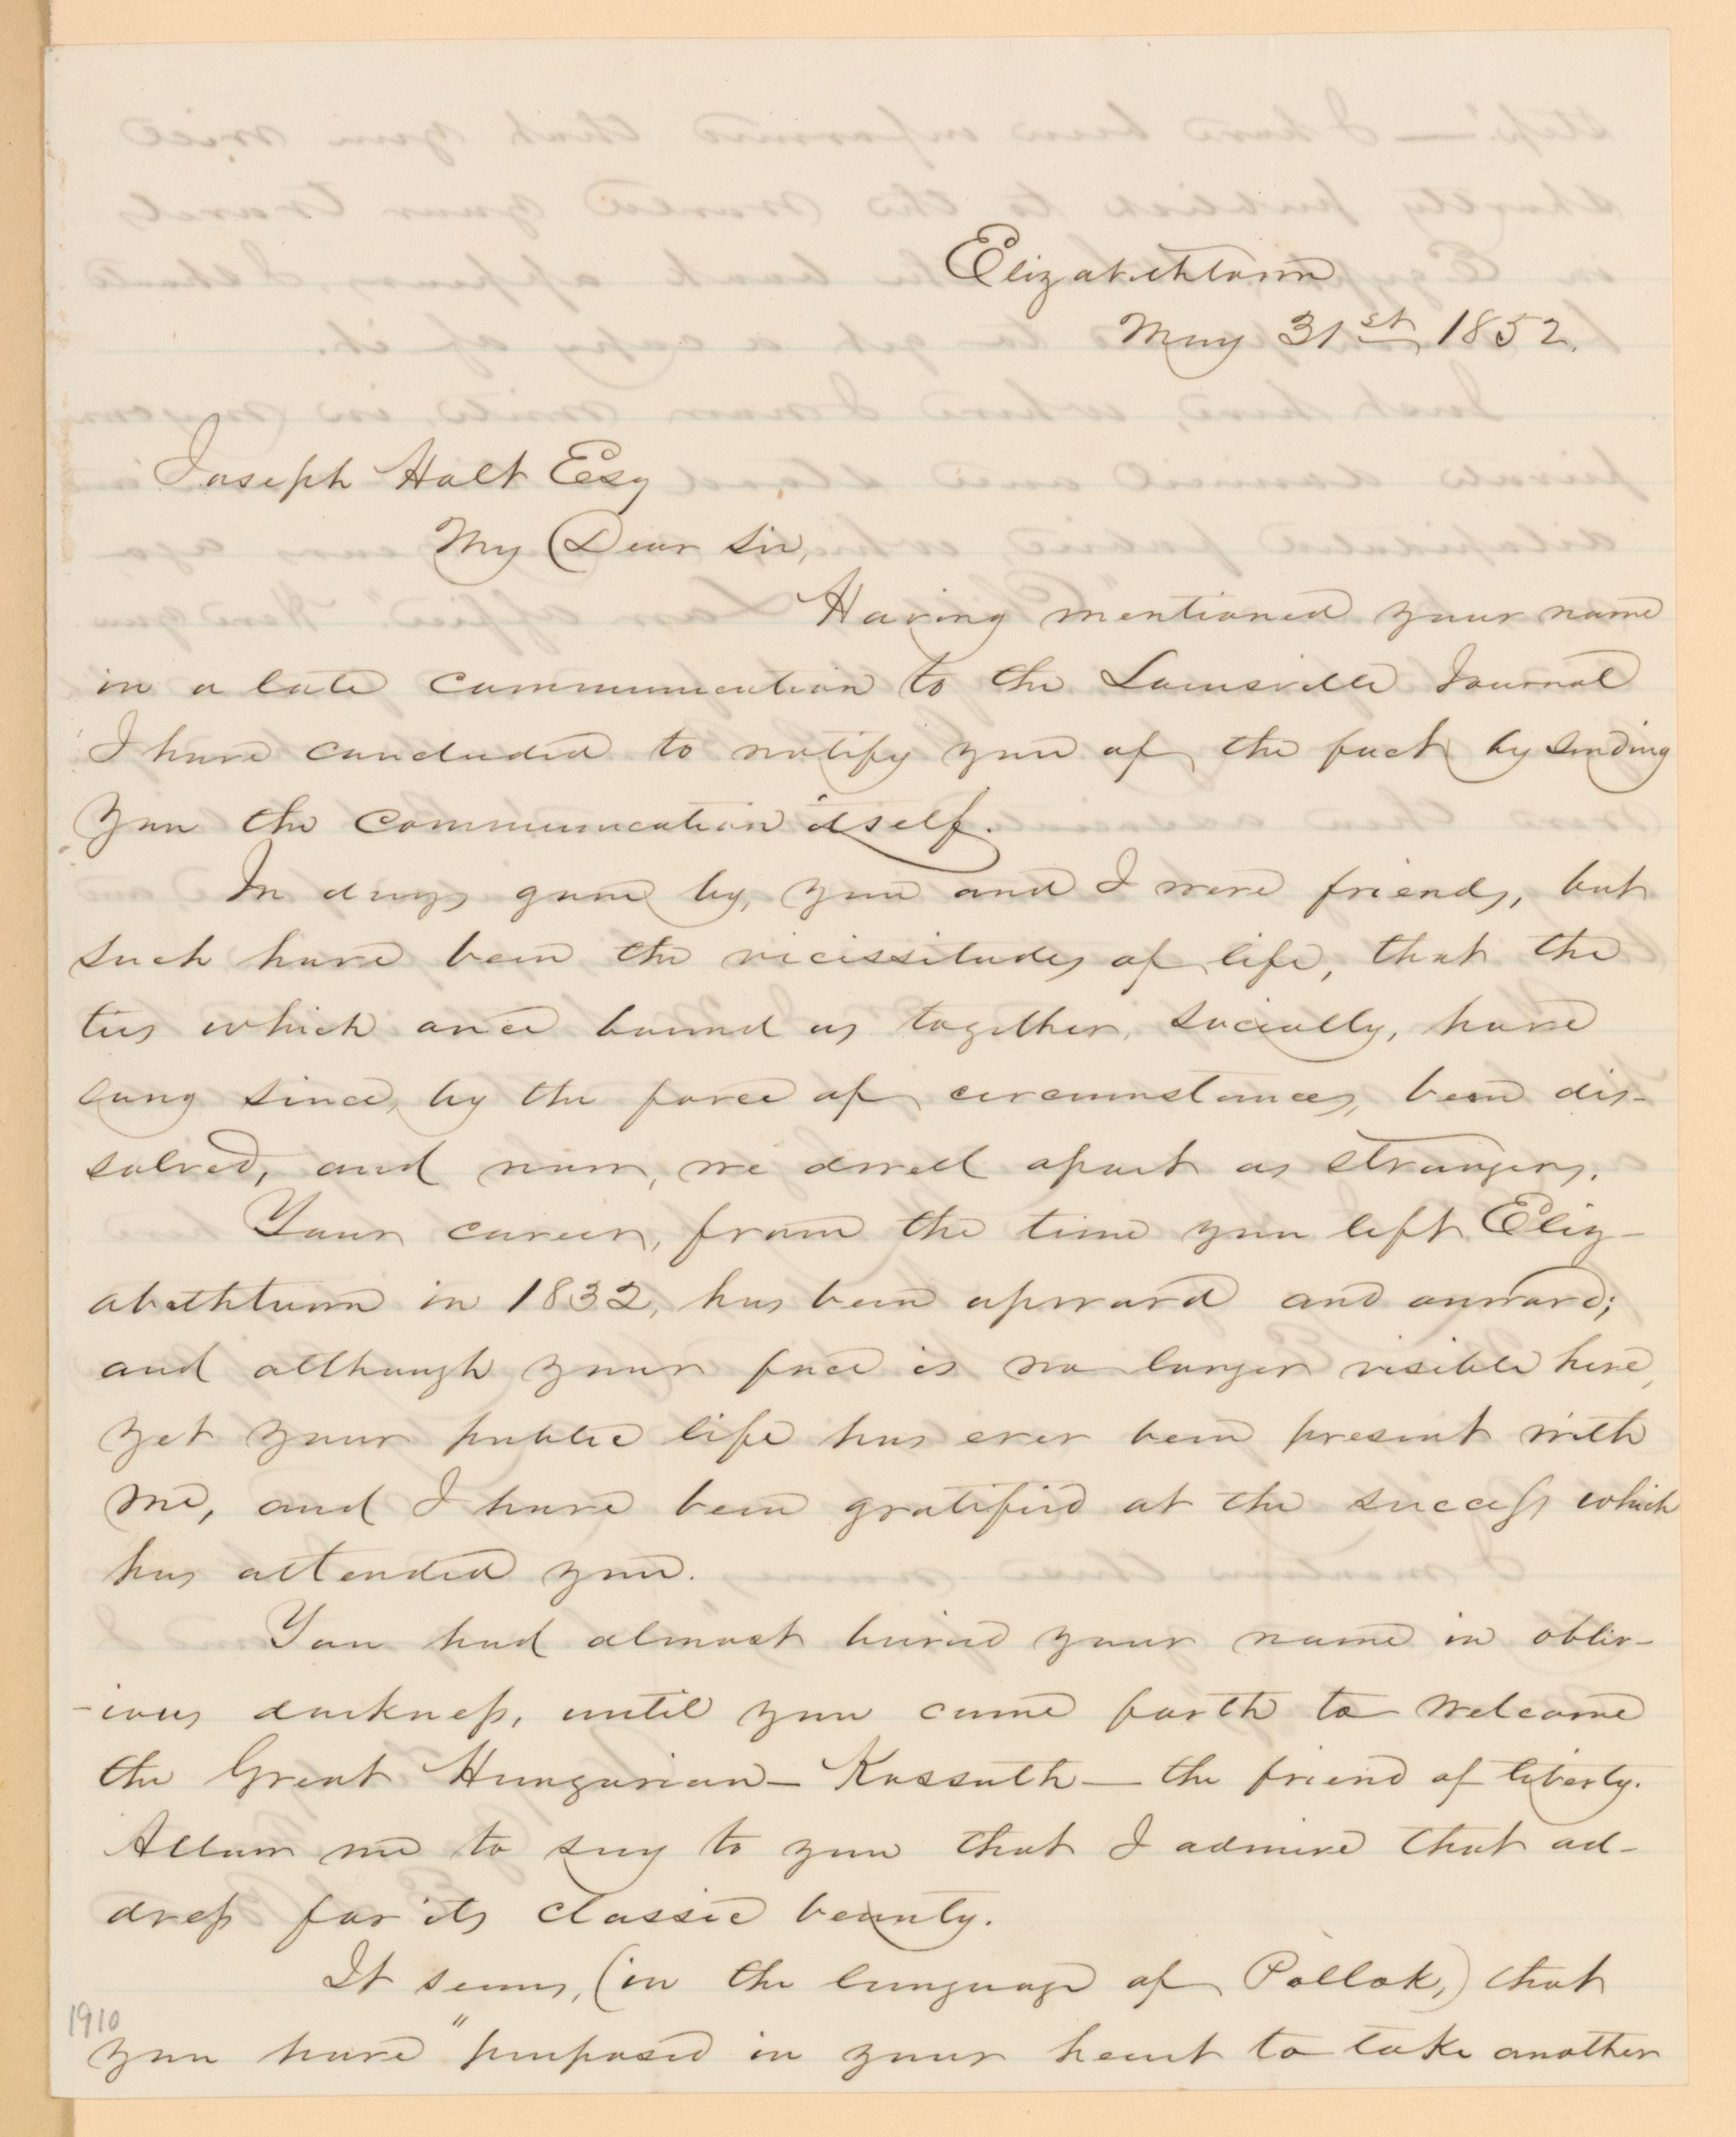 Elizabethtown
May 31st 1852.
Joseph Holt Esq
My Dear Sir,
Having mentioned your name
in a late communication to the Louisville Journal
I have concluded to notify you of the fact by sending
you the communication itself.
In days gone by, you and I were friends, but
such have been the vicissitudes of life, that the
ties which once bound us together, socially, have
long since, by the force of circumstances, been dis-
solved, and now, we dwell apart as strangers.
Your career, from the time you left Eliz-
abethtown in 1832, has been upward and onward;
and although your face is no longer visible here,
yet your public life has ever been present with
me, and I have been gratified at the success which
has attended you.
You had almost buried your name in obliv-
-ious darkness, until you came forth to welcome
the Great Hungarian — Kossuth — the friend of liberty.
Allow me to say to you that I admire that ad-
dress for its classic beauty.
It seems, (in the language of Pollok,) that
1910
you have "purposed in your heart to take another